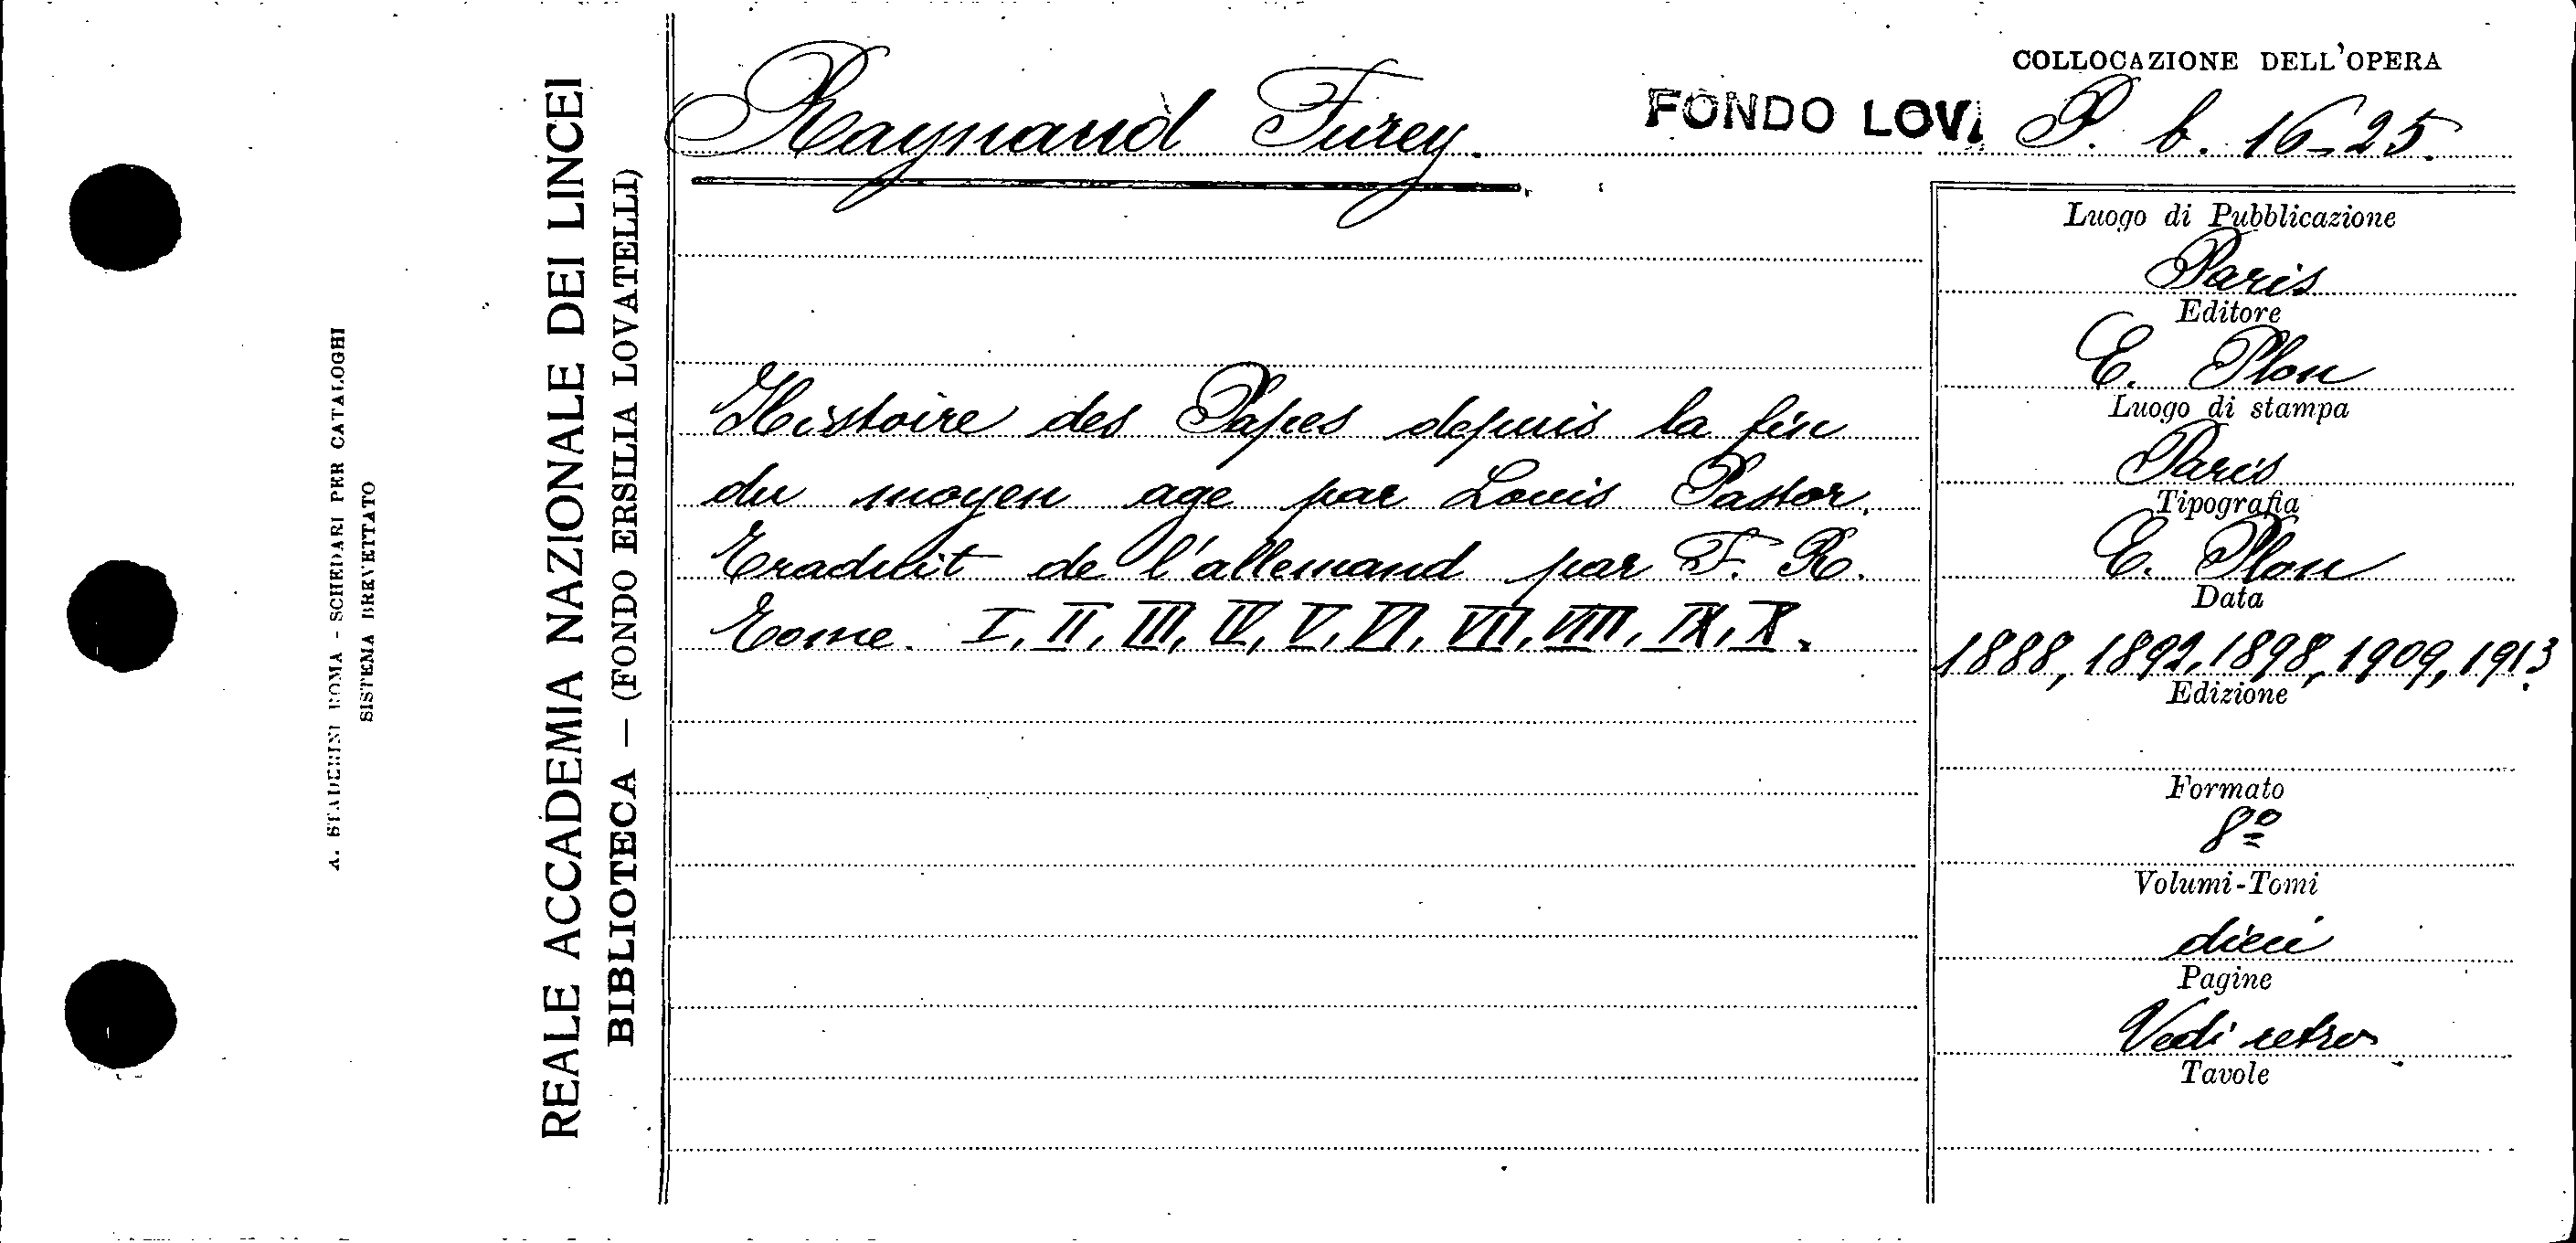 COLLOCAZIONE DELL'OPERA
Raynaud Furey.
FONDO LOV
P. b. 16-25.
Histoire des Papes depuis la fin
du moyen age par Louis Pastor.
Traduit de l'allemand par F. R.
Tome. I, II, III, IV, V, VI, VII, VIII, IX, X.
Luogo di Pubblicazione
Paris
Editore
E. Plon
Luogo di stampa
Paris
Tipografia
E. Plon
Data
1888, 1892, 1898, 1909, 1913
Edizione
Formato
8º
Volumi-Tomi
dieci
Pagine
Vedi retro
Tavole
REALE ACCADEMIA NAZIONALE DEI LINCEI
BIBLIOTECA — (FONDO ERSILIA LOVATELLI)
A. STADERINI ROMA - SCHEDARI PER CATALOGHI
SISTEMA BREVETTATO